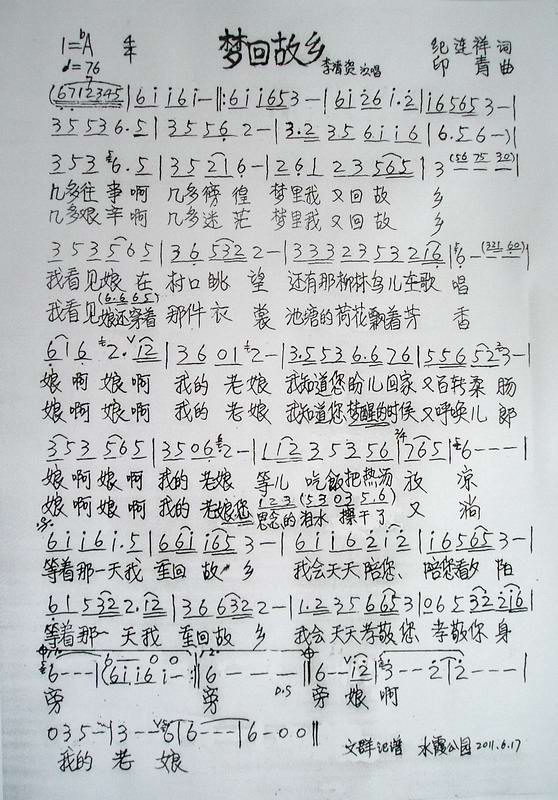 1=♭A 4/4 梦回故乡 纪连祥 词
♩=76 李清资 演唱 印青 曲
(6712345|6i i6i-‖:6i i653-|6i26i.2|i65653-|
35536.5|35562-|3.235 6i i6|6.56-)|
353 6.5|35216-|2612 3565|3(5675 30)|
几多往事啊 几多徬徨 梦里我又回故 乡
几多艰辛啊 几多迷茫 梦里我又回故 乡
353565|365322-|333235 3216|6-(321 60)|
我看见娘在 村口眺 望 还有那柳林鸟儿在歌 唱
(6.665)
我看见娘还穿着 那件衣 裳 池塘的荷花飘着芳 香
616 2.12|36012-|3.553 6.676|556523-|
娘啊娘啊 我的 老娘 我知道您盼儿回家又百转柔 肠
娘啊娘啊 我的 老娘 我知道您梦醒的时候又呼唤儿 郎
353 565|35062-|112 35356|765|6---|
娘啊娘啊 我的老娘 等儿 吃饭把热汤 放 凉
123(5303 5.6)
娘啊娘啊 我的老娘您 思念的泪水 擦干了 又 淌
6i i6i.5|66i i653-|6i i62i2|i65653-|
等着那一天我 重回故 乡 我会天天陪您、 陪您看夕 阳
615322.12|366322-|1.235 6653|065 32216|
等着那一 天我 重回故 乡 我会天天孝敬您 孝敬你身
6---|(6i i6i-:‖6---‖6-i2|3--2|2---|
旁 旁 D.S 旁 娘啊
035-|3--6|6---|6-00‖
我的 老 娘
文群记谱 水霞公园 2011.6.17